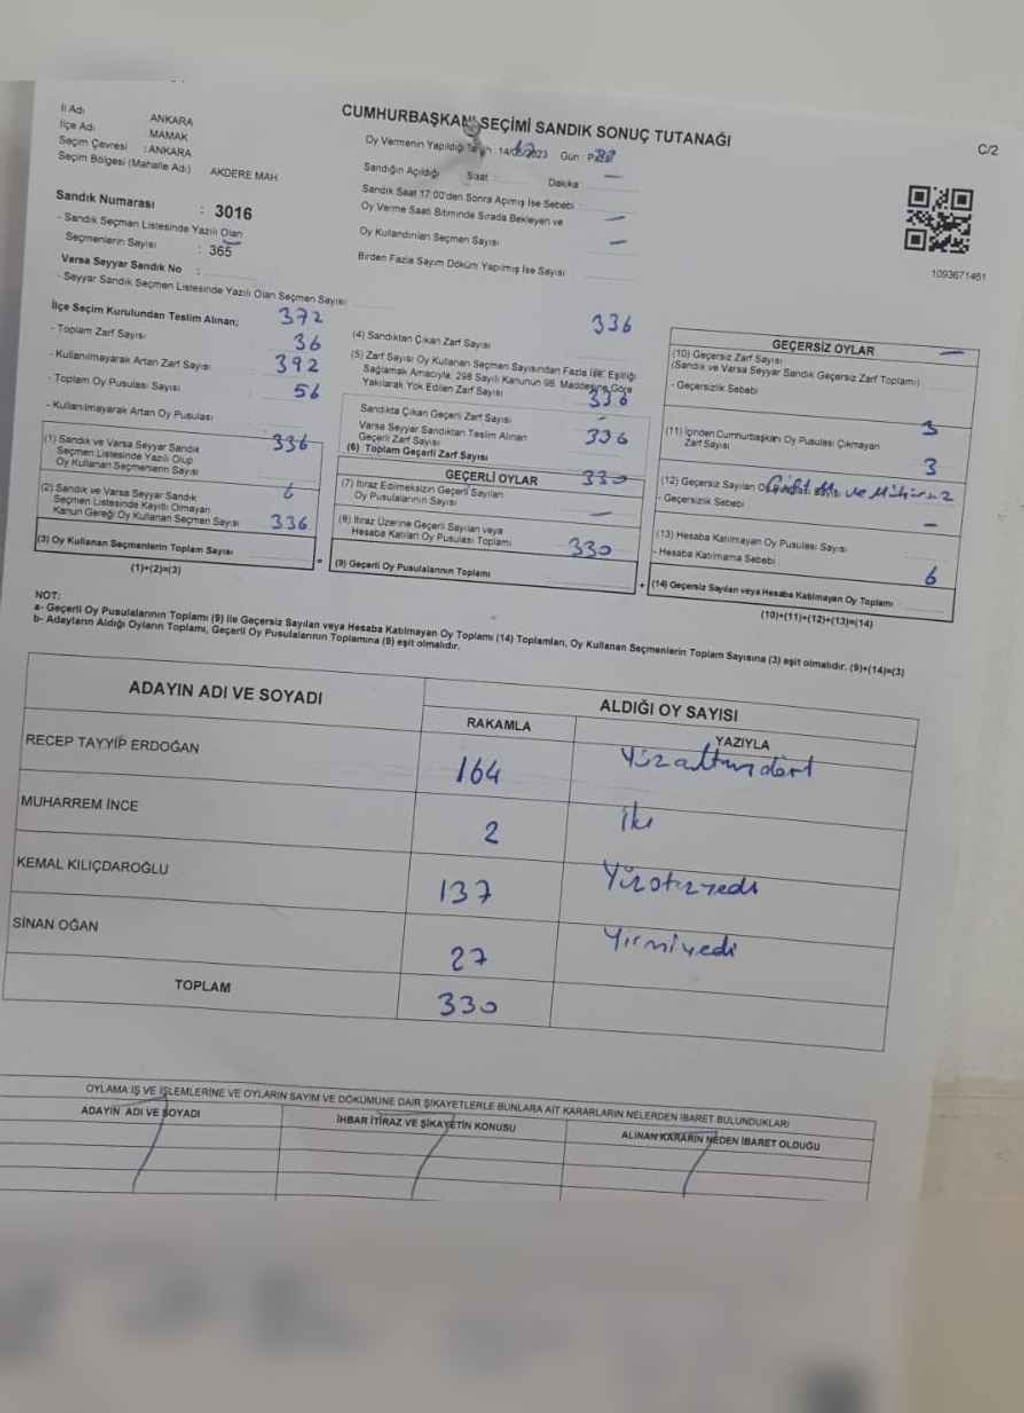 CUMHURBAŞKANI SEÇİMİ SANDIK SONUÇ TUTANAĞI
C/2
İl Adı ANKARA
İlçe Adı MAMAK
Seçim Çevresi : ANKARA
Seçim Bölgesi (Mahalle Adı) AKDERE MAH
Sandık Numarası : 3016
- Sandık Seçmen Listesinde Yazılı Olan
Seçmenlerin Sayısı : 365
Varsa Seyyar Sandık No :
- Seyyar Sandık Seçmen Listesinde Yazılı Olan Seçmen Sayısı
Oy Vermenin Yapıldığı 2023 Gün :
Sandığın Açıldığı Saat : Dakika
Sandık Saat 17:00'den Sonra Açılmış İse Sebebi
Oy Verme Saati Bitiminde Sırada Bekleyen ve
Oy Kullandırılan Seçmen Sayısı
Birden Fazla Sayım Döküm Yapılmış İse Sayısı
1093671461
İlçe Seçim Kurulundan Teslim Alınan;
- Toplam Zarf Sayısı 372
- Kullanılmayarak Artan Zarf Sayısı 36
- Toplam Oy Pusulası Sayısı 392
- Kullanılmayarak Artan Oy Pusulası 56
(1) Sandık ve Varsa Seyyar Sandık
Seçmen Listesinde Yazılı Olup
Oy Kullanan Seçmenlerin Sayısı 336
(2) Sandık ve Varsa Seyyar Sandık
Seçmen Listesinde Kayıtlı Olmayan
Kanun Gereği Oy Kullanan Seçmen Sayısı
(3) Oy Kullanan Seçmenlerin Toplam Sayısı 336
(1)+(2)=(3)
(4) Sandıktan Çıkan Zarf Sayısı 336
(5) Zarf Sayısı Oy Kullanan Seçmen Sayısından Fazla İse, Eşitliği
Sağlamak Amacıyla, 298 Sayılı Kanunun 98. Maddesine Göre
Yakılarak Yok Edilen Zarf Sayısı
Sandıkta Çıkan Geçerli Zarf Sayısı 336
Varsa Seyyar Sandıktan Teslim Alınan
Geçerli Zarf Sayısı
(6) Toplam Geçerli Zarf Sayısı 336
GEÇERLİ OYLAR
(7) İtiraz Edilmeksizin Geçerli Sayılan
Oy Pusulalarının Sayısı 330
(8) İtiraz Üzerine Geçerli Sayılan veya
Hesaba Katılan Oy Pusulası Toplamı —
(9) Geçerli Oy Pusulalarının Toplamı 330
GEÇERSİZ OYLAR
(10) Geçersiz Zarf Sayısı —
(Sandık ve Varsa Seyyar Sandık Geçersiz Zarf Toplamı)
- Geçersizlik Sebebi
(11) İçinden Cumhurbaşkanı Oy Pusulası Çıkmayan
Zarf Sayısı 3
(12) Geçersiz Sayılan 3
- Geçersizlik Sebebi ve Mühürsüz
(13) Hesaba Katılmayan Oy Pusulası Sayısı —
- Hesaba Katılmama Sebebi
(14) Geçersiz Sayılan veya Hesaba Katılmayan Oy Toplamı 6
(10)+(11)+(12)+(13)=(14)
NOT:
a- Geçerli Oy Pusulalarının Toplamı (9) ile Geçersiz Sayılan veya Hesaba Katılmayan Oy Toplamı (14) Toplamları, Oy Kullanan Seçmenlerin Toplam Sayısına (3) eşit olmalıdır. (9)+(14)=(3)
b- Adayların Aldığı Oyların Toplamı, Geçerli Oy Pusulalarının Toplamına (9) eşit olmalıdır.
ADAYIN ADI VE SOYADI
ALDIĞI OY SAYISI
RAKAMLA YAZIYLA
RECEP TAYYİP ERDOĞAN 164 Yüzaltmışdört
MUHARREM İNCE 2 İki
KEMAL KILIÇDAROĞLU 137 Yüzotuzyedi
SİNAN OĞAN 27 Yirmiyedi
TOPLAM 330
OYLAMA İŞ VE İŞLEMLERİNE VE OYLARIN SAYIM VE DÖKÜMÜNE DAİR ŞİKAYETLERLE BUNLARA AİT KARARLARIN NELERDEN İBARET BULUNDUKLARI
ADAYIN ADI VE SOYADI İHBAR İTİRAZ VE ŞİKAYETİN KONUSU ALINAN KARARIN NEDEN İBARET OLDUĞU